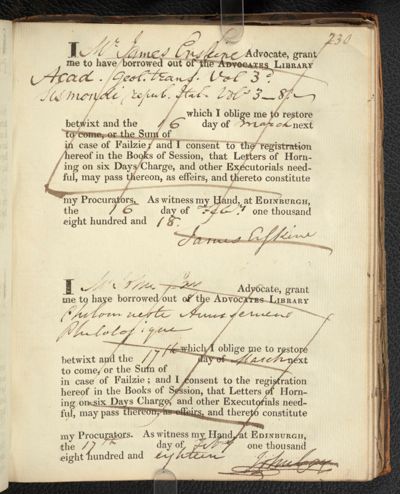 230
I Mr James Erskine Advocate, grant
me to have borrowed out of the ADVOCATES LIBRARY
Acad. Geol. trans. Vol 3d.
Sismondi, repub. Ital. Vols 3_8
which I oblige me to restore
betwixt and the 16 day of March next
to come, or the Sum of
in case of Failzie; and I consent to the registration
hereof in the Books of Session, that Letters of Horn-
ing on six Days Charge, and other Executorials need-
ful, may pass thereon, as effeirs, and thereto constitute
my Procurators. As witness my Hand, at EDINBURGH,
the 16 day of Feby. one thousand
eight hundred and 18.
James Erskine
I Mr Advocate, grant
me to have borrowed out of the ADVOCATES LIBRARY
Philomneste Amusemens
Philologique
which I oblige me to restore
betwixt and the 17th day of March next
to come, or the Sum of
in case of Failzie; and I consent to the registration
hereof in the Books of Session, that Letters of Horn-
ing on six Days Charge, and other Executorials need-
ful, may pass thereon, as effeirs, and thereto constitute
my Procurators. As witness my Hand, at EDINBURGH,
the 17th day of Feby one thousand
eight hundred and eighteen